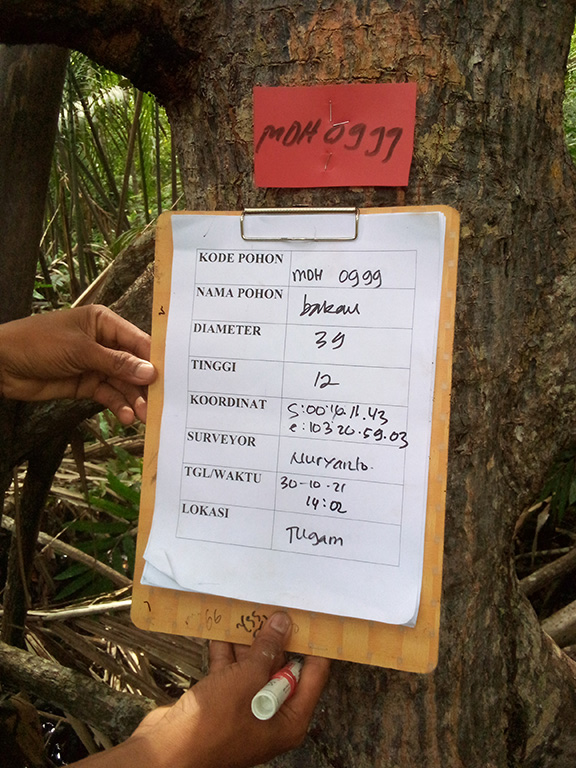 MDH 0999
KODE POHON MDH 0999
NAMA POHON bakau
DIAMETER 39
TINGGI 12
KOORDINAT S:00'16.11.43
e:103'20.59.03
SURVEYOR Nuryanto.
TGL/WAKTU 30-10-21
14:02
LOKASI Tugam